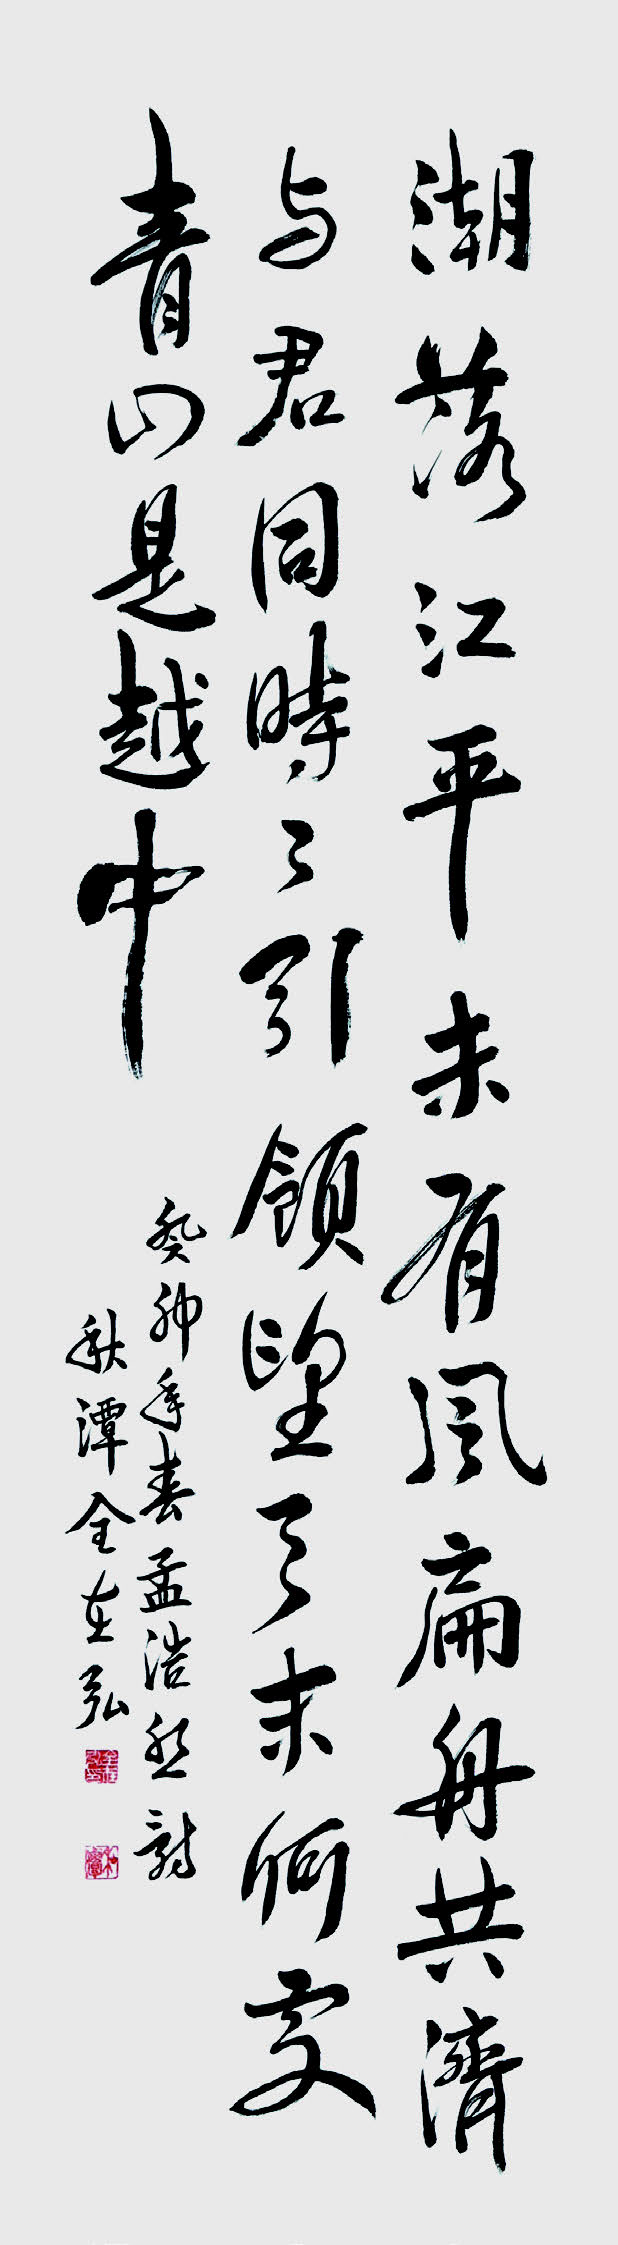 潮落江平未有風扁舟共濟
与君同時時引領望天末何處
青山是越中
癸卯年春孟浩然詩
秋潭全在弘